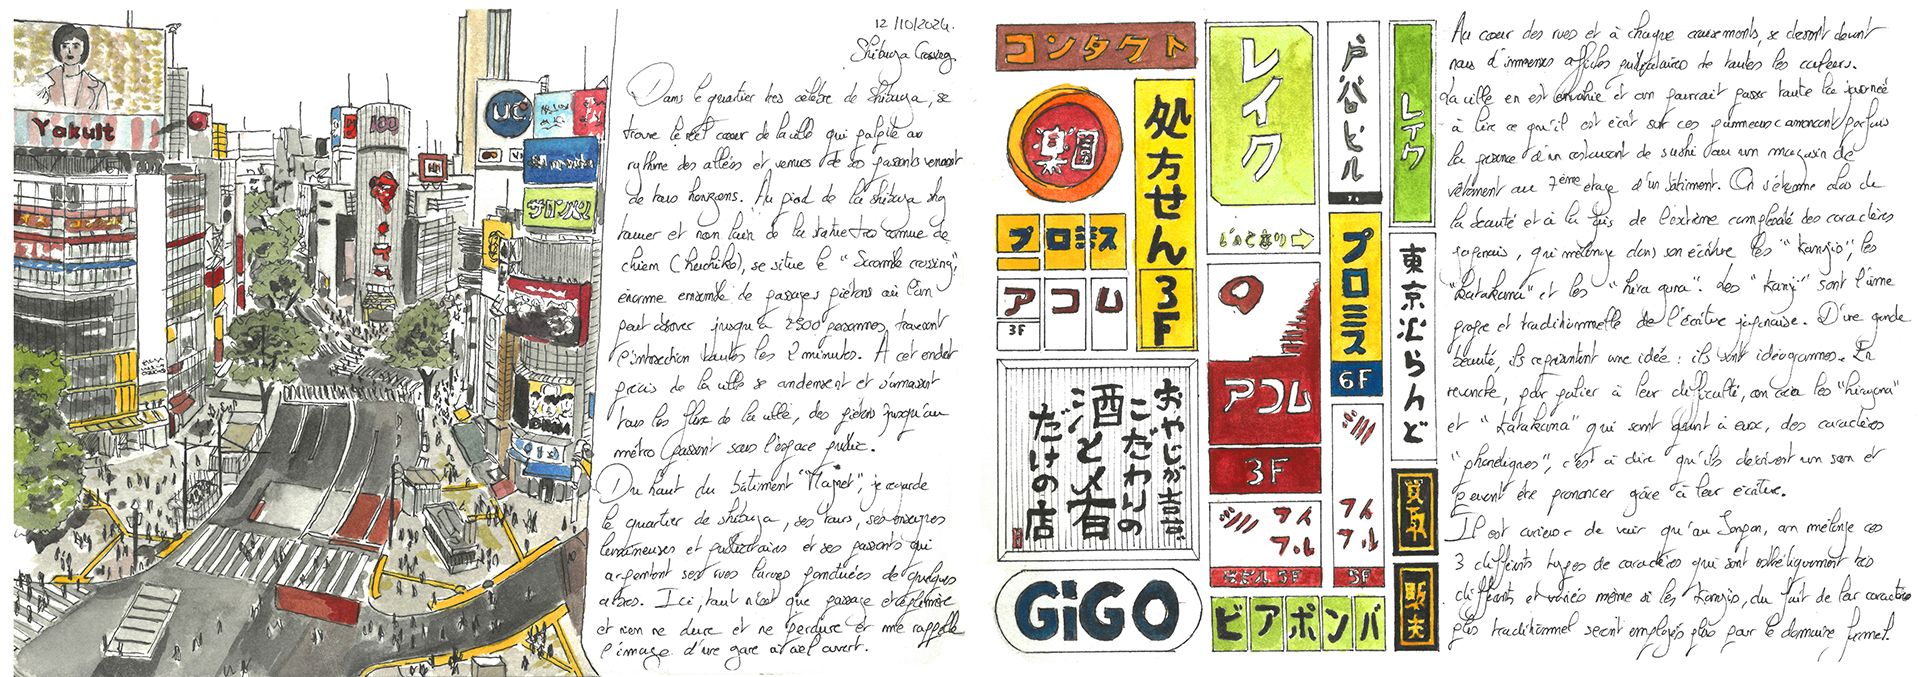 12/10/2024.
Shibuya Crossing
Yakult
UC
109
サロンパス
Dans le quartier très célèbre de Shibuya, se
trouve le réel cœur de la ville qui palpite au
rythme des allées et venues de ses passants venant
de tous horizons. Au pied de la Shibuya sky
tower et non loin de la statue très connue de
chien (Hachiko), se situe le "Scramble crossing",
énorme ensemble de passages piétons où l'on
peut observer jusqu'à 2500 personnes, traversant
l'intersection toutes les 2 minutes. A cet endroit
précis de la ville se condensent et s'amassent
tous les flux de la ville, des piétons jusqu'au
métro passant sous l'espace public.
Du haut du bâtiment "Magnet", je regarde
le quartier de Shibuya, ses tours, ses enseignes
lumineuses et publicitaires et ses passants qui
arpentent ses rues larges ponctuées de quelques
arbres. Ici, tout n'est que passage et éphémère
et rien ne dure et ne perdure et me rappelle
l'image d'une gare à ciel ouvert.
コンタクト
楽園
処方せん3F
プロミス
アコム
3F
おやじが吉祥
こだわりの
酒と肴
だけの店
GiGO
レイク
アコム
3F
アイフル
ビル5F
ビアポンバ
戸谷ビル
プロミス
6F
アイフル
5F
レイク
東京ぶらんど
買取
Au cœur des rues et à chaque croisements, se dressent devant
nous d'immenses affiches publicitaires de toutes les couleurs.
La ville en est envahie et on pourrait passer toute la journée
à lire ce qu'il est écrit sur ces panneaux annonçant parfois
la présence d'un restaurant de sushi ou un magasin de
vêtement au 7ème étage d'un bâtiment. On s'étonne alors de
la beauté et à la fois de l'extrême complexité des caractères
japonais, qui mélange dans son écriture les "Kanjis", les
"Katakana" et les "hiragana". Les "Kanji" sont l'âme
propre et traditionnelle de l'écriture japonaise. D'une grande
beauté, ils représentent une idée : ils sont idéogrammes. En
revanche, pour palier à leur difficulté, on a créé les "hiragana"
et "Katakana" qui sont quant à eux, des caractères
"phonétiques", c'est à dire qu'ils décrivent un son et
peuvent être prononcer grâce à leur écriture.
Il est curieux de voir qu'au Japon, on mélange ces
3 différents types de caractères qui sont esthétiquement très
différents et variés même si les Kanjis, du fait de leur caractère
plus traditionnel seront employés plus pour le domaine formel.